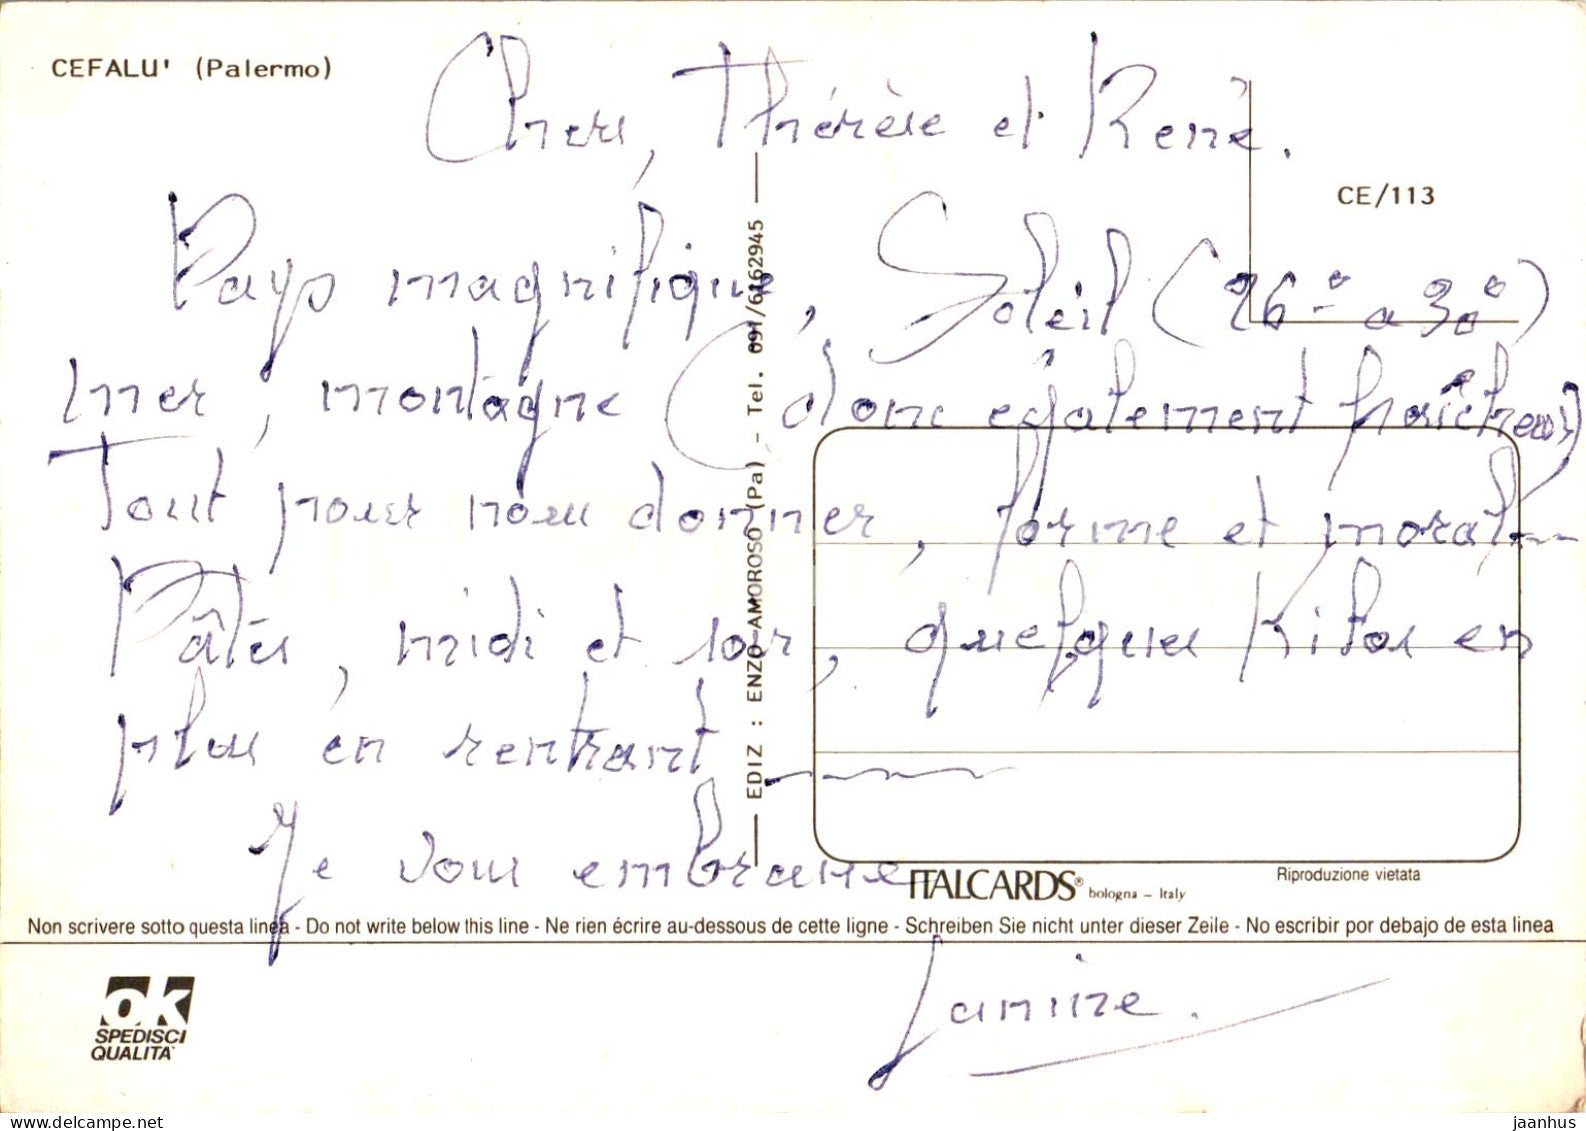 CEFALU' (Palermo)
Chers, Thérèse et René.
CE/113
Pays magnifique, Soleil (26° à 30°)
mer, montagne (donc également fraîcheur)
Tout pour nous donner, forme et moral
Pâtes, midi et soir, quelques Kilos en
plus en rentrant
Je vous embrasse
Janine.
EDIZ : ENZO AMOROSO (Pa) - Tel. 091/6162945
ITALCARDS® bologna - Italy
Riproduzione vietata
Non scrivere sotto questa linea - Do not write below this line - Ne rien écrire au-dessous de cette ligne - Schreiben Sie nicht unter dieser Zeile - No escribir por debajo de esta linea
OK
SPEDISCI
QUALITA'
jaanhus